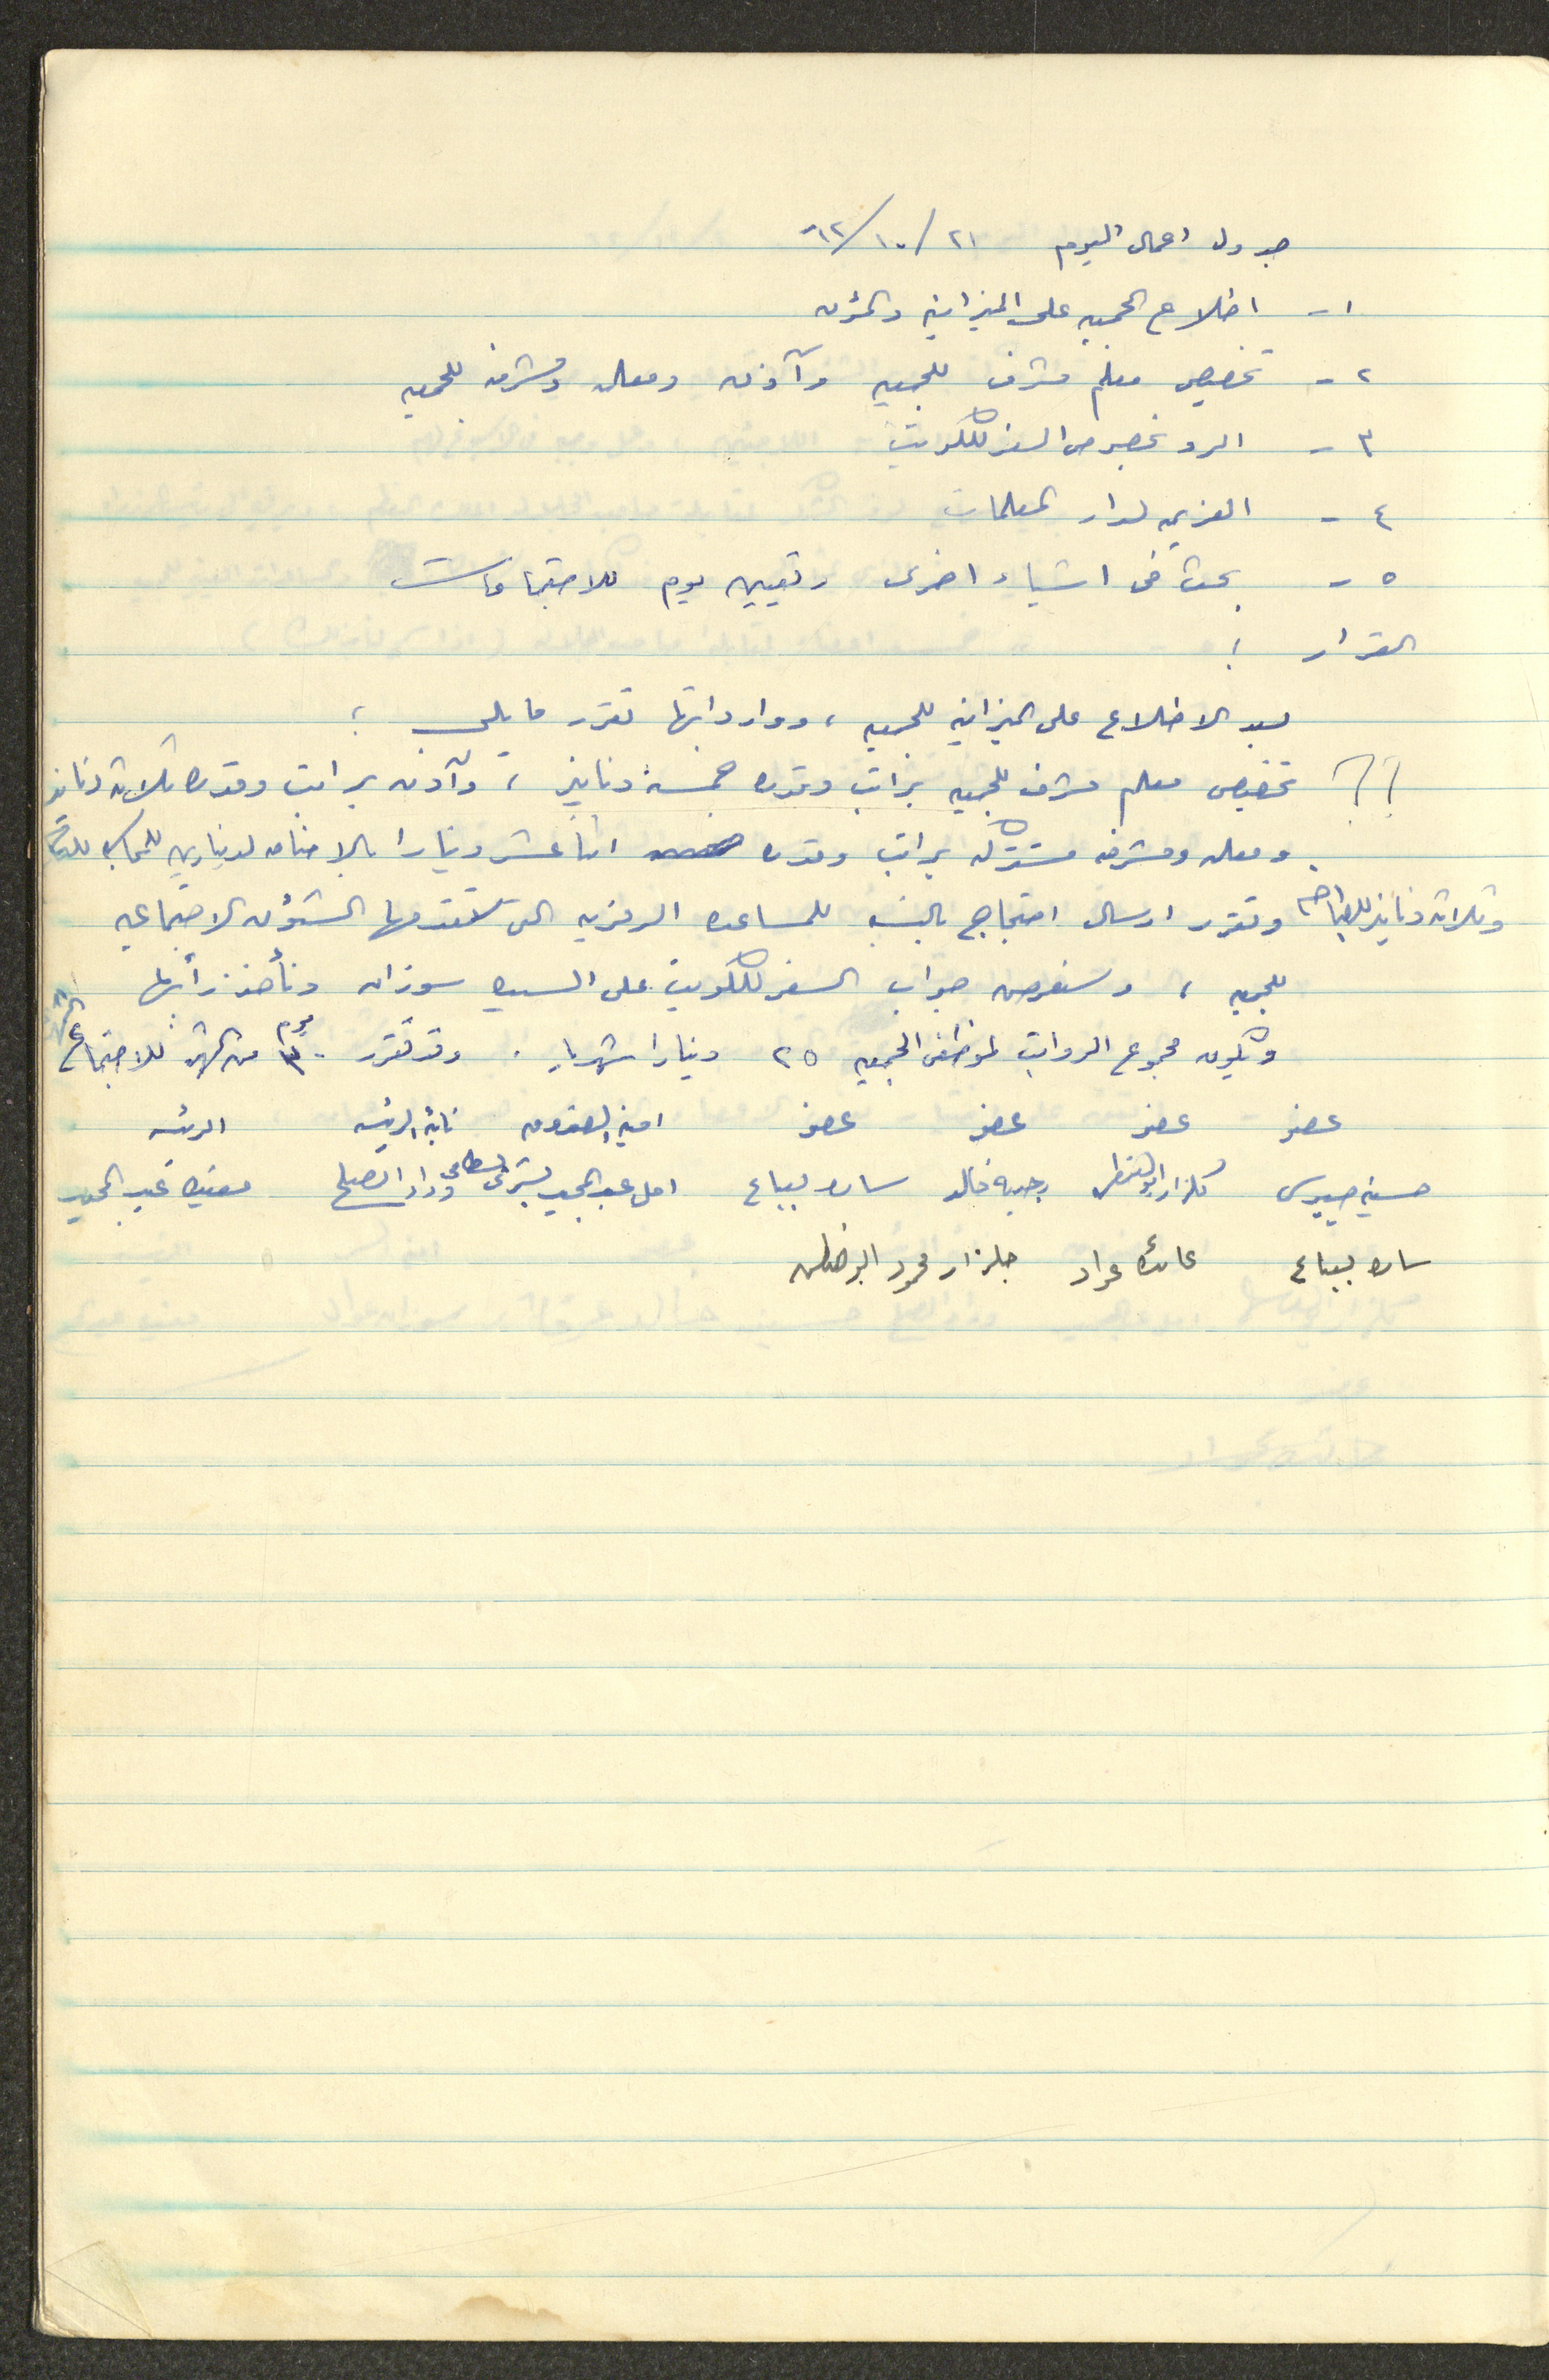 جدول اعمال اليوم ٢١/١٠/
١- اطلاع الجميه على الميزانيه والمؤن
٢- تخصيص معلم مشرف للجميه وآذن ومعلمه ومشرفه للجميه
٣- الرد بخصوص السفر للكويت
٤- العزيمه لدار المعلمات
٥- بحث في اشياء اخرى وتعيين يوم للاجتماعات
القرار :
بعد الاطلاع على الميزانيه للجميه ، ووارداتها تقرر ما يلي :
تخصيص معلم مشرف للجميه براتب وقدره خمسة دنانير ، وآذن براتب وقدره ثلاثة دنانير
ومعلمه ومشرفه مشتركه براتب وقدره اثنا عشر دينارا بالاضافه لدينارين
وثلاثه دنانير وتقرر ارسال احتجاج بالنسبه للمساعده الرمزيه التي ستقدمها الشؤون الاجتماعيه
للجميه ، وسنعرض جواب السفر للكويت على السيده سوزان ونأخذ رأيها
ويكون مجموع الرواتب لموظفي الجميه ٢٥ دينارا شهريا . وقد تقرر يوم ٣٠ من الشهر للاجتماع
عضو عضو عضو عضو امينة الصندوق نائبة الرئيسه الرئيسه
حسنيه كلزار ابو خضرا وجيهه خالد ساره بياع امل عبد المجيد بشرى وداد الصلح مفيده عبد المجيد
ساره بياع عائده عواد جلزار محمود